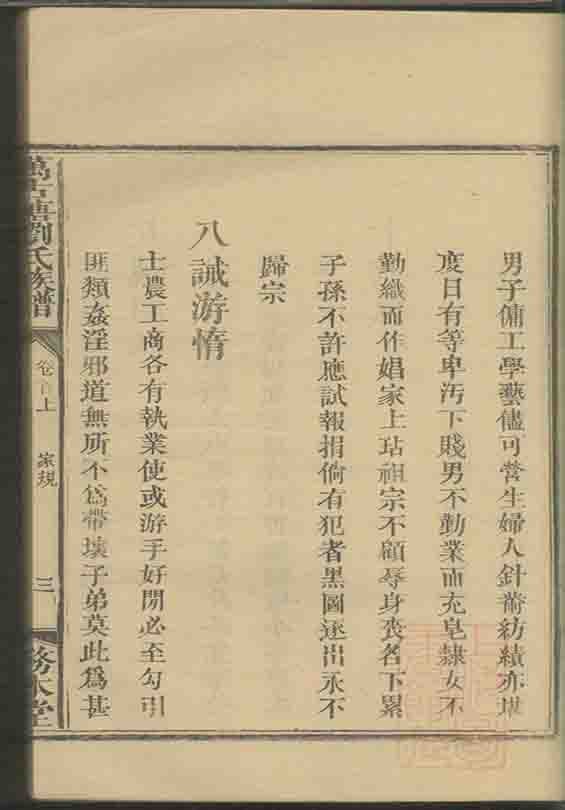 男子傭工學藝儘可營生婦人針黹紡績亦堪
度日有等卑汚下賤男不勤業而充皂隸女不
勤織而作娼家上玷祖宗不顧辱身喪名下累
子孫不許應試報捐倘有犯者黑圖逐出永不
歸宗
八誡游惰
士農工商各有執業使或游手好閒必至勾引
匪類姦淫邪道無所不爲帶壞子弟莫此爲甚
萬古塘劉氏族譜
卷首上
家規
三
務本堂